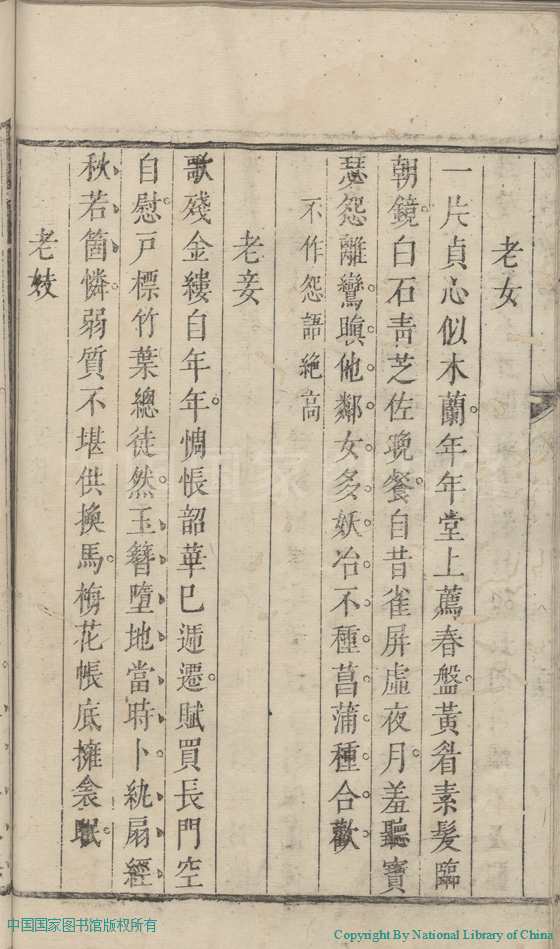 老女
一片貞心似木蘭年年堂上薦春盤黃眉素髮臨
朝鏡白石靑芝佐晚餐自昔雀屏虛夜月羞聽寶
瑟怨離鸞嗔他鄰女多妖冶不種菖蒲種合歡
不作怨語絶高
老妾
歌殘金縷自年年惆悵韶華已逓遷賦買長門空
自慰戸標竹葉總徒然玉簪墮地當時卜紈扇經
秋若箇憐弱質不堪供換馬梅花帳底擁衾眠
老妓
中国国家图书馆版权所有
Copyright By National Library of China